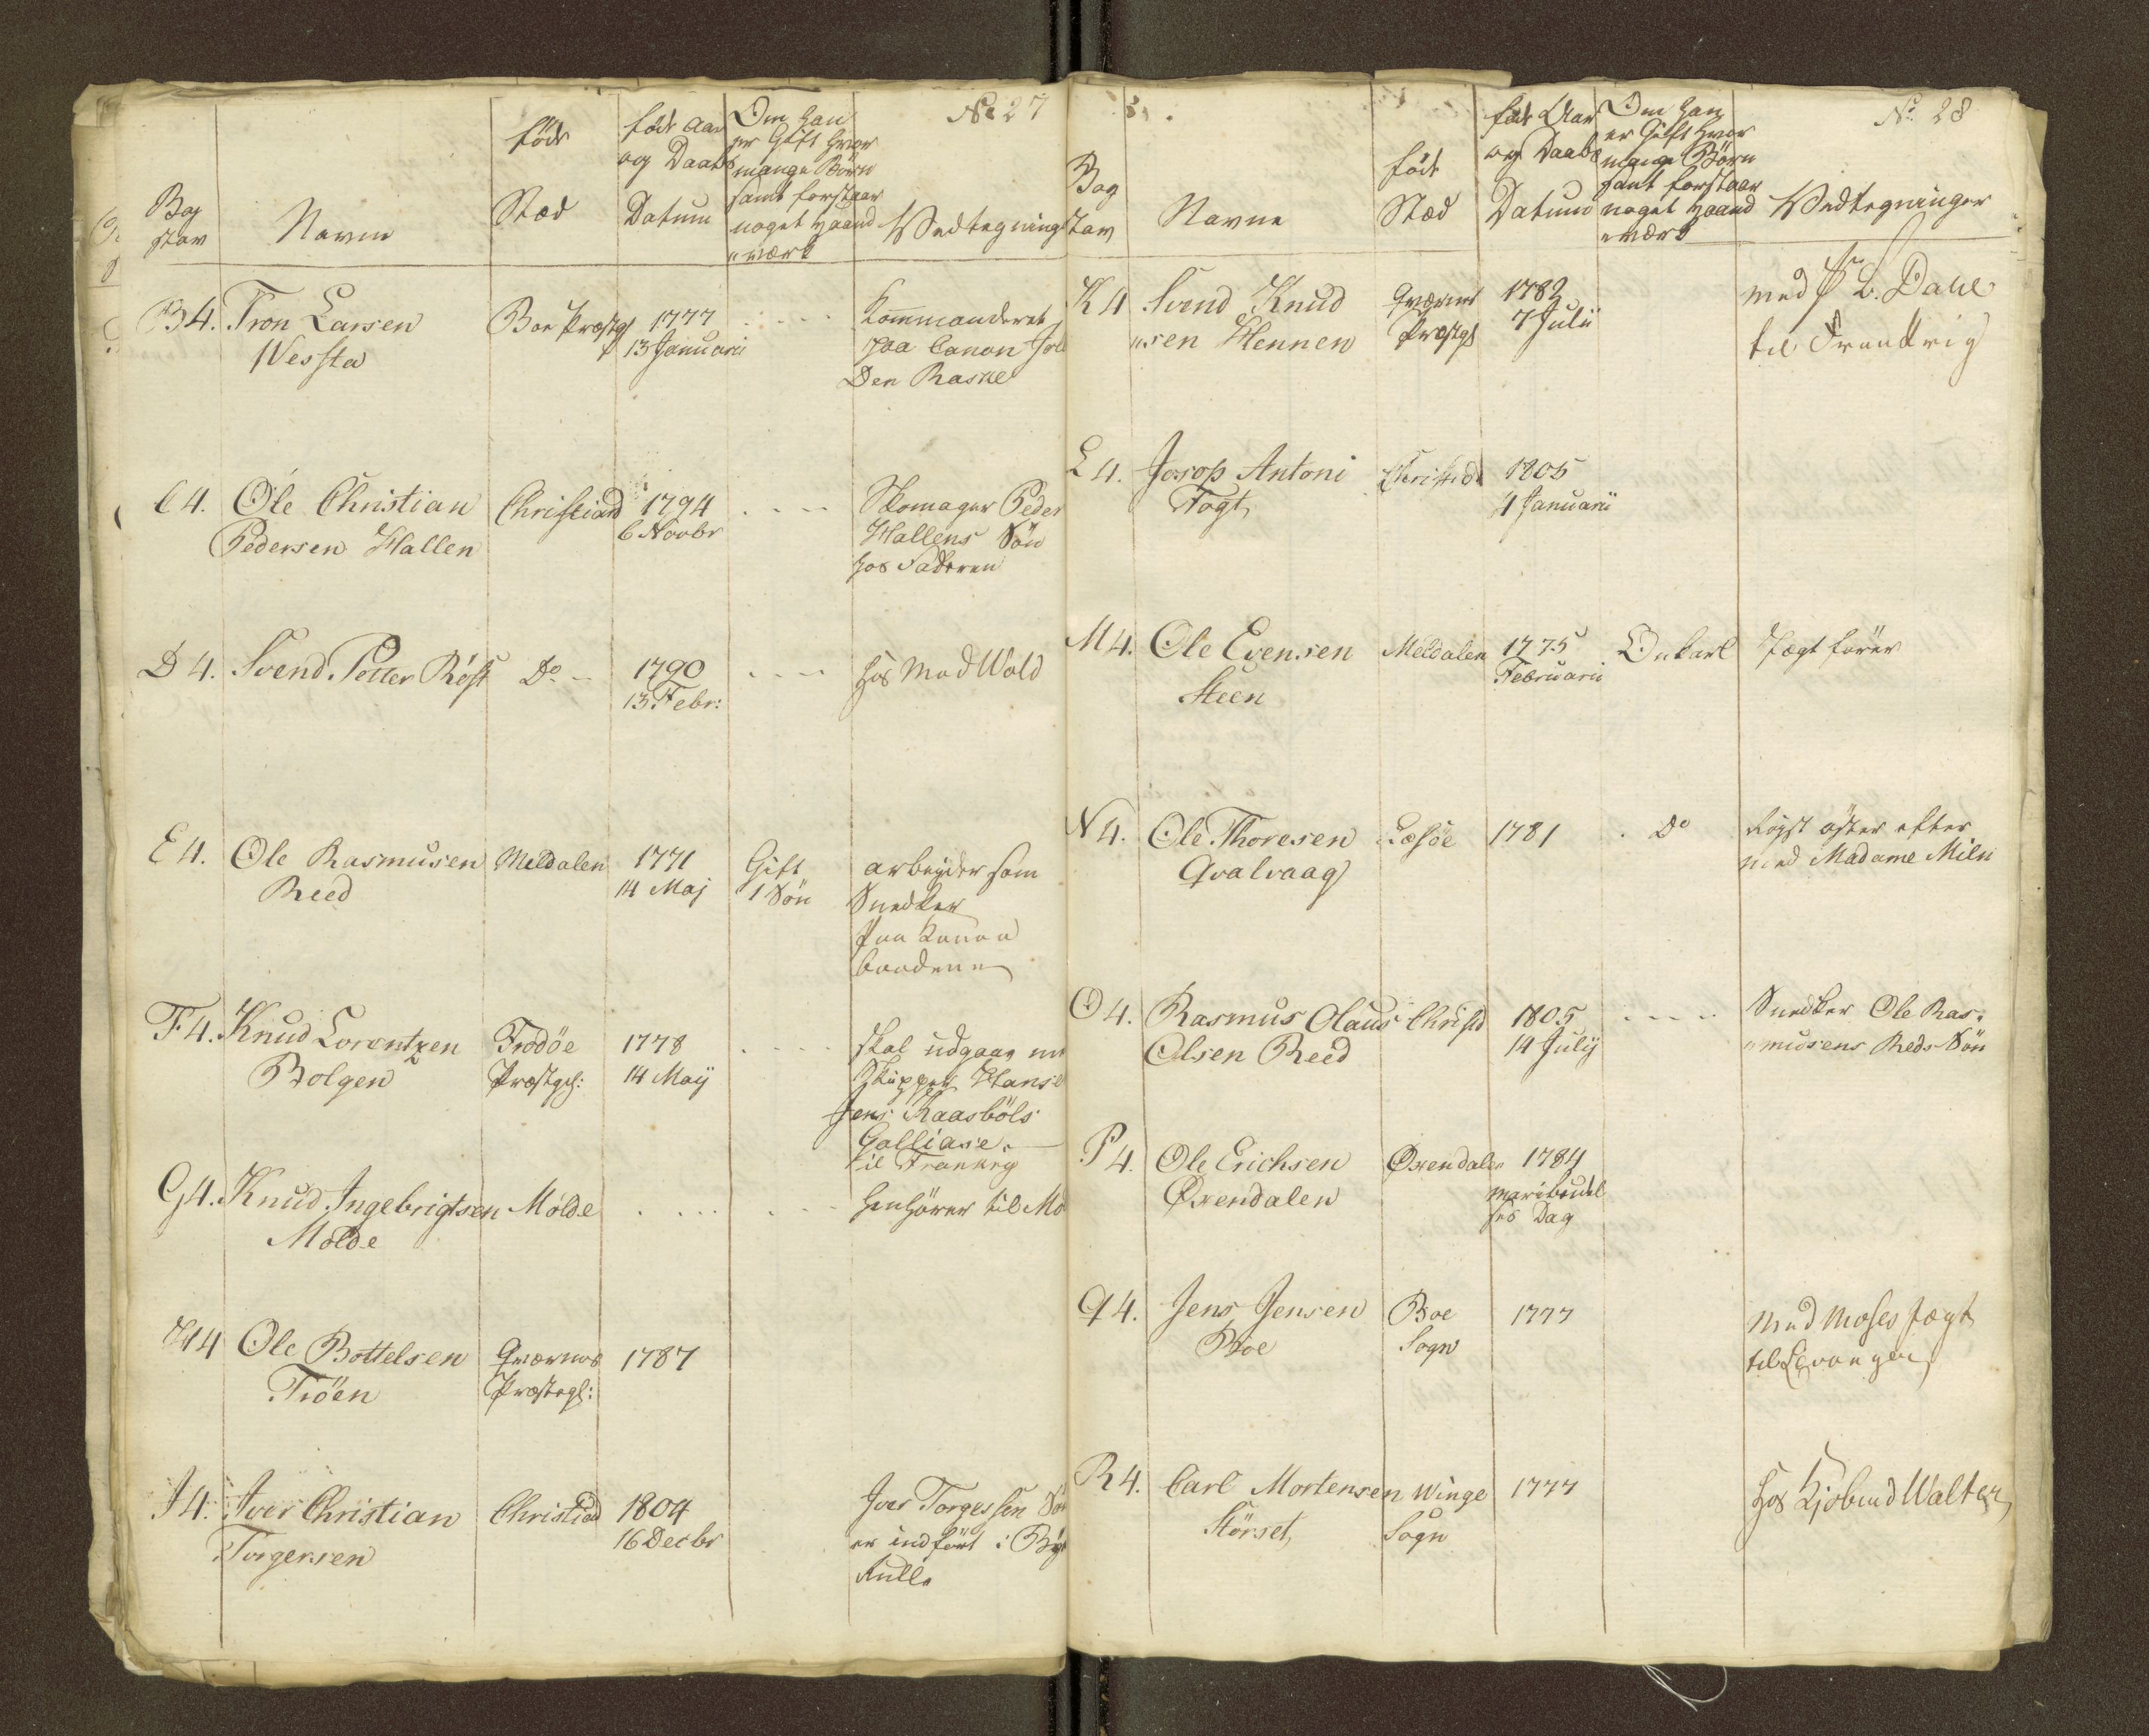 No 27
Bog
stav
Navne
född
Stæd
född Aar
og Daabs
Datum
Om han
er Gift hvor
mange Börn
samt forstaar
noget Haand
"værk
Vedtegning
B 4. Tron Larsen
Wessta
Boe Præstgl
1777
13 Januarii
Kommanderet
paa Canon Jol
Den Raske
C 4. Ole Christian
Pedersen Hallen
Christiand
1794
6 Novbr
Skomager Peder
Hallens Sön
hos Faderen
D 4. Svend Petter Röst
Do
1790
13 Febr:
hos Mad Wold
E 4. Ole Rasmusen
Reed
Meldalen
1771
14 Maj
Gift
1 Sön
arbeyder som
Snedker
paa Canon
baadene
F 4. Knud Lorentzen
Bolgen
Frodöe
Præstgl:
1778
14 Maij
skal udgaar
Skipper Hans
Jens Kaasböls
Galliase.
til Frankrig
G 4. Knud Ingebrigtsen
Molde
Molde
henhörer til Mo
H 4 Ole Bottelsen
Tröen
Qværnes
Præstegl:
1787
J 4. Iver Christian
Torgersen
Christiand
1804
16 Decbr
Iver Torgessen Sön
er indfört i By
Rulle
No. 28
Bog
stav
Navne
födt
Stæd
föde Aar
og Daabs
Datum
Om han
er Gift hvor
mange Börn
samt forstaar
noget Haand
"værk
Vedtegninger
K 4 Svend Knud
"sen Hennen
Qværnes
Præstgl
1782
7 Julii
med L. Dahl
til Frankrig
L 4. Josop Antoni
Fogt
Christd
1805
4 Januarii
M 4. Ole Evensen
Steen
Meldalen
1775
Februarii
Onkarl
Jægt förer
N 4. Ole Thoresen
Qvalvaag
1781
Do
Rejst öster efter
med Madame Miln
O 4. Rasmus Olaus
Olsen Reed
Christd
1805
14 Julij
Snedker Ole Ras=
"musens Reds Sön
P 4. Ole Erichsen
Öxendalen
Öxendalen
1784
Maribeudel
ses Dag
Q 4. Jens Jensen
Boe
Boe
Sogn
1777
med Moses Jægt
til Levangen
R 4. Carl Mortensen
Störset
Winge
Sogn
1777
hos Kjöbmd Walter